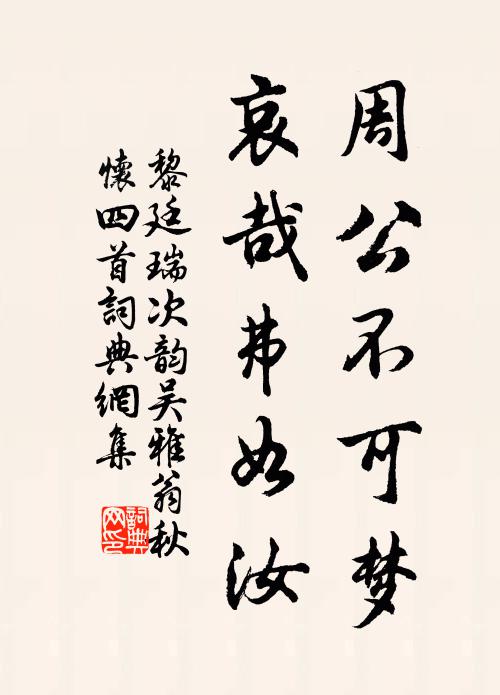 周公不可梦
哀哉弗如汝
黎廷瑞次韵吴雅翁秋
懷四首詞典網集
詞典
网印